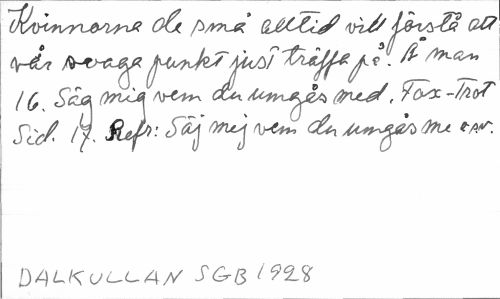 Kvinnorna de små alltid vill förstå att
vår svaga punkt just träffa på. Å man
16. Säg mig vem du umgås med. Fox-Trot
Sid. 17. Refr: Säj mej vem du umgås me
DALKULLAN SGB 1928